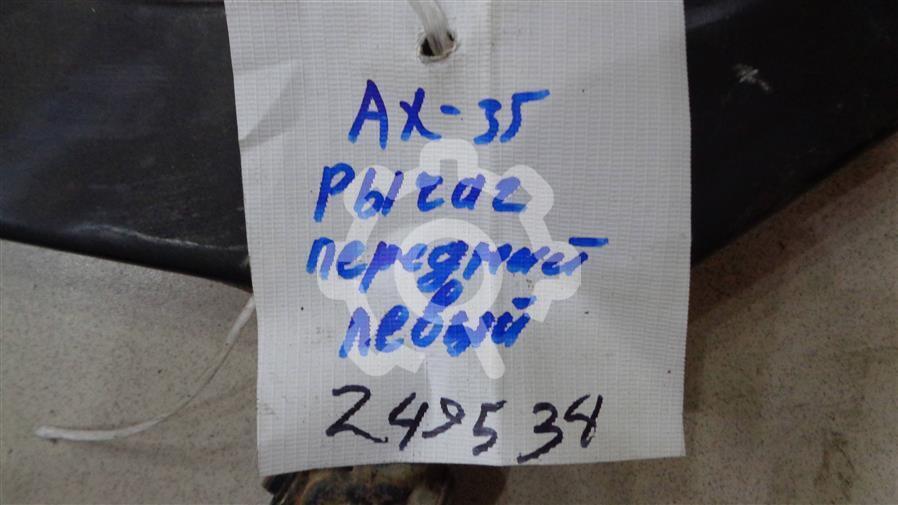 АХ-35
Рычаг
передний
левый
249534